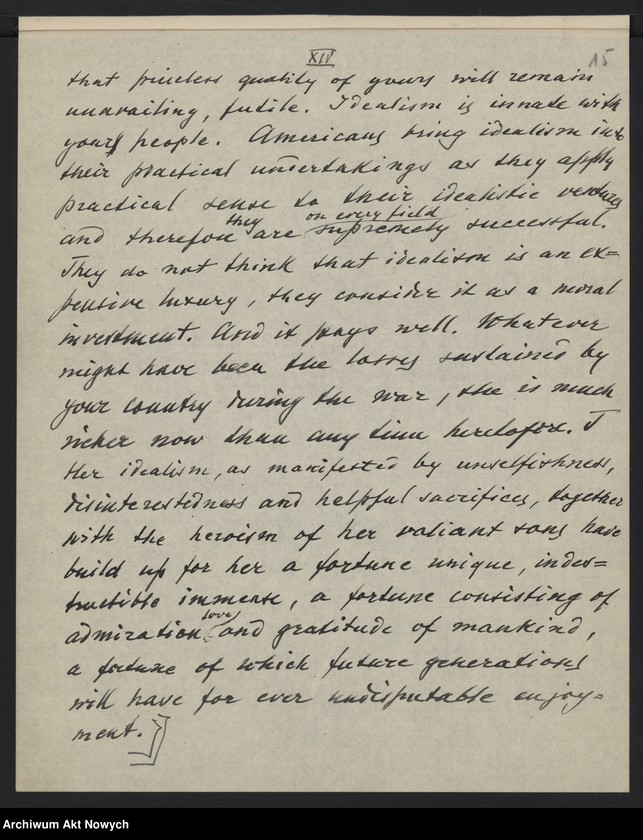 XIV
15
that priceless quality of yours will remain
unavailing, futile. Idealism is innate with
your people. Americans bring idealism into
their practical undertakings as they apply
practical sense to their idealistic ventures
they on every field
and therefore are supremely successful.
They do not think that idealism is an ex=
pensive luxury, they consider it as a moral
investment. And it pays well. Whatever
might have been the losses sustained by
your country during the war, she is much
richer now than any time heretofore. I
Her idealism, as manifested by unselfishness,
disinterestedness and helpful sacrifices, together
with the heroism of her valiant sons have
build up for her a fortune unique, indes=
tructible immense, a fortune consisting of
love,
admiration and gratitude of mankind,
a fortune of which future generations
will have for ever undisputable enjoy=
ment.]
Archiwum Akt Nowych